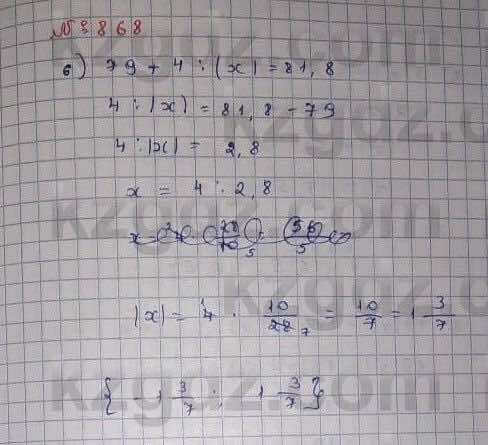 № 868
б) 79 + 4 : |x| = 81,8
4 : |x| = 81,8 - 79
4 : |x| = 2,8
x = 4 : 2,8
|x| = 4 · 10/28 7 = 10/7 = 1 3/7
{ - 1 3/7 ; 1 3/7 }
kzgdz.com